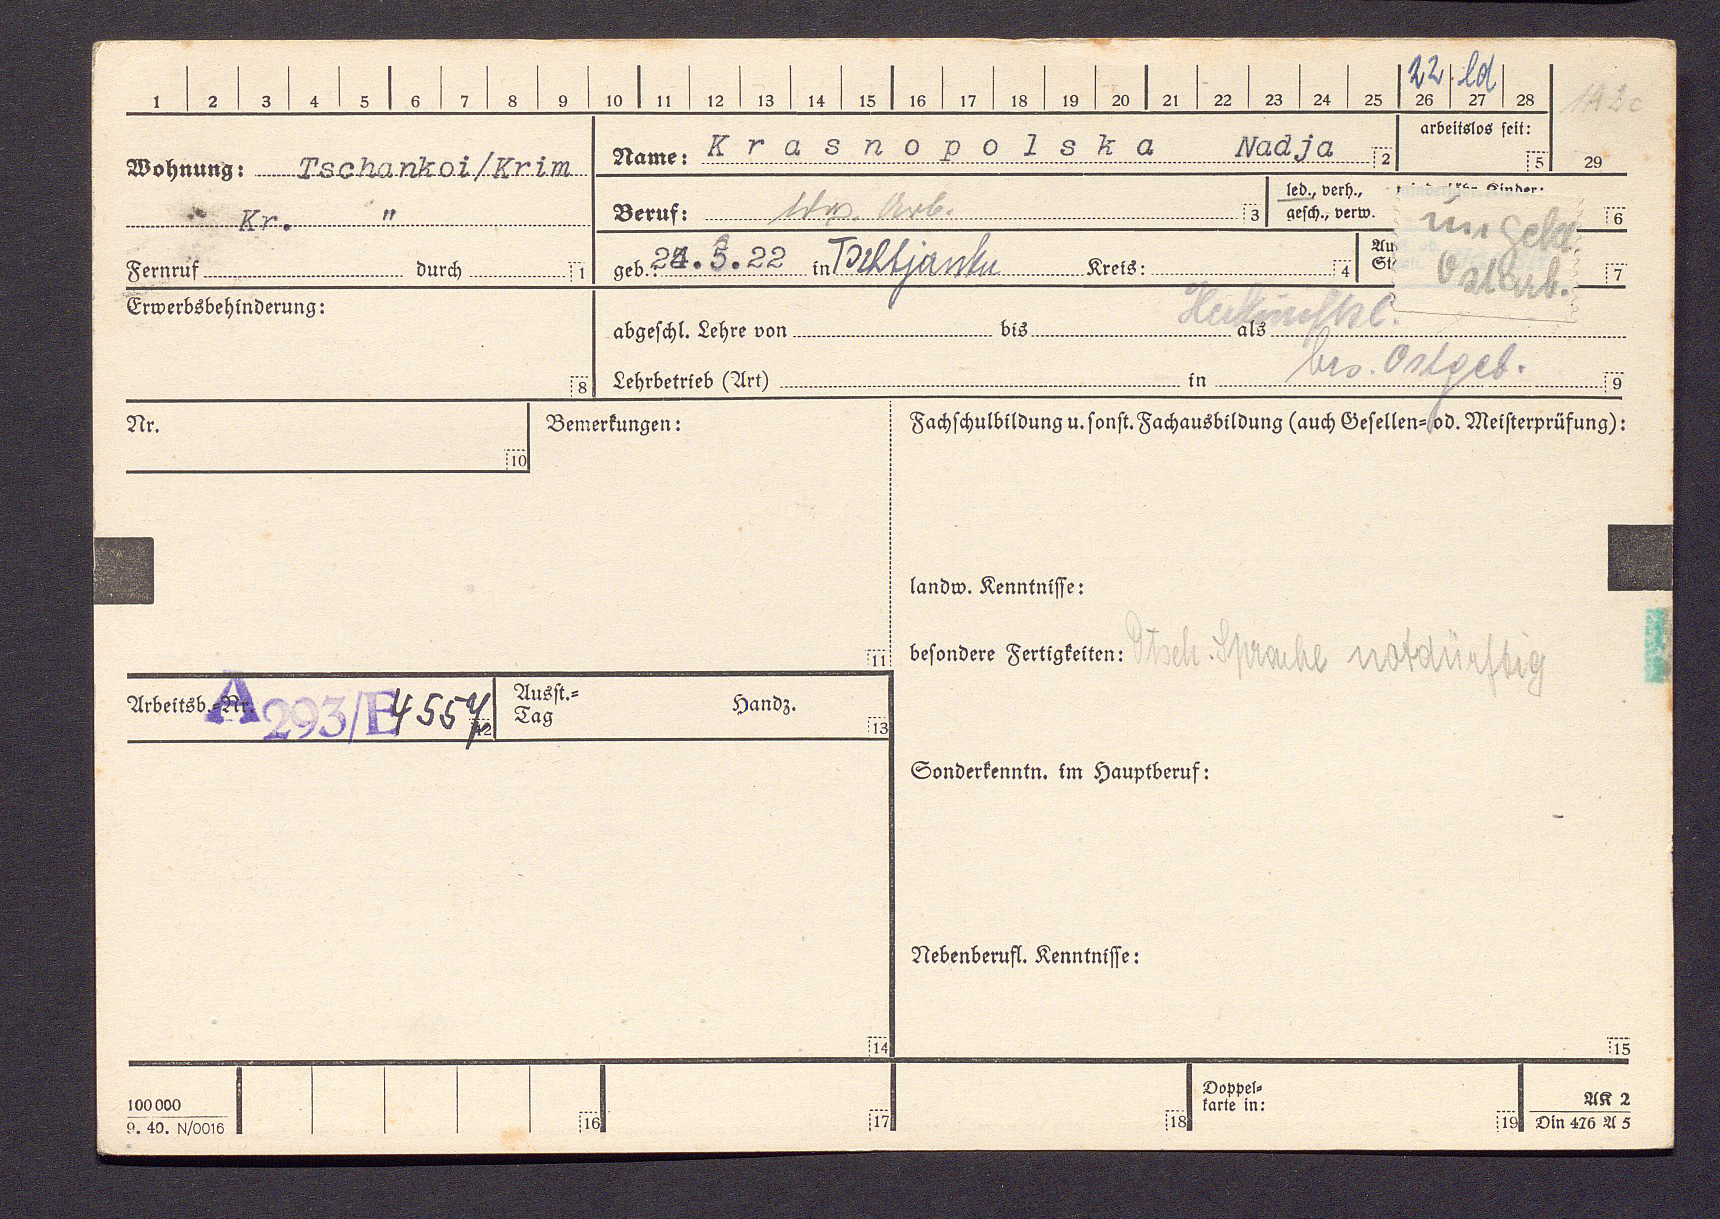 22 ld
1 2 3 4 5 6 7 8 9 10 11 12 13 14 15 16 17 18 19 20 21 22 23 24 25 26 27 28
29
Wohnung: Tschankoi/Krim
Kr. "
Fernruf durch 1
Name: Krasnopolska Nadja 2
arbeitslos seit: 5
Beruf: Arb. 3
led., verh.,
gesch., verw.
Kinder: 6
ungel.
Ostarb.
geb.: .5.22 in Kreis: 4
7
Erwerbsbehinderung: 8
abgeschl. Lehre von bis als
Lehrbetrieb (Art) in 9
bes. Ostgeb.
Nr. 10
Bemerkungen: 11
Fachschulbildung u. sonst. Fachausbildung (auch Gesellen- od. Meisterprüfung):
landw. Kenntnisse:
besondere Fertigkeiten: Dtsch. Sprache notdürftig
Arbeitsb.-Nr. A 293/E 4557 12
Ausst.-
Tag Handz. 13
Sonderkenntn. im Hauptberuf:
Nebenberufl. Kenntnisse:
14 15
100 000
9. 40. N/0016
16 17 18
Doppel-
karte in: 19
AK 2
Din 476 A 5